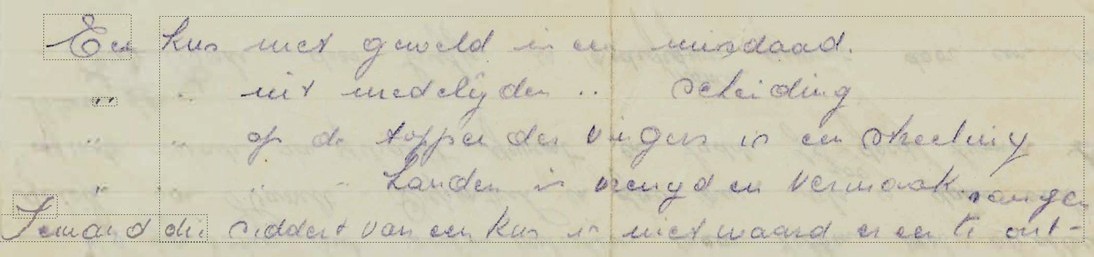 Een kus met geweld is een misdaad.
" " uit medelijden " " scheiding
" " op de toppen der vingers is een streeling
" " " " handen is vreugd en vermaak.
Iemand die siddert van een kus is niet waard er een te ont-
vangen